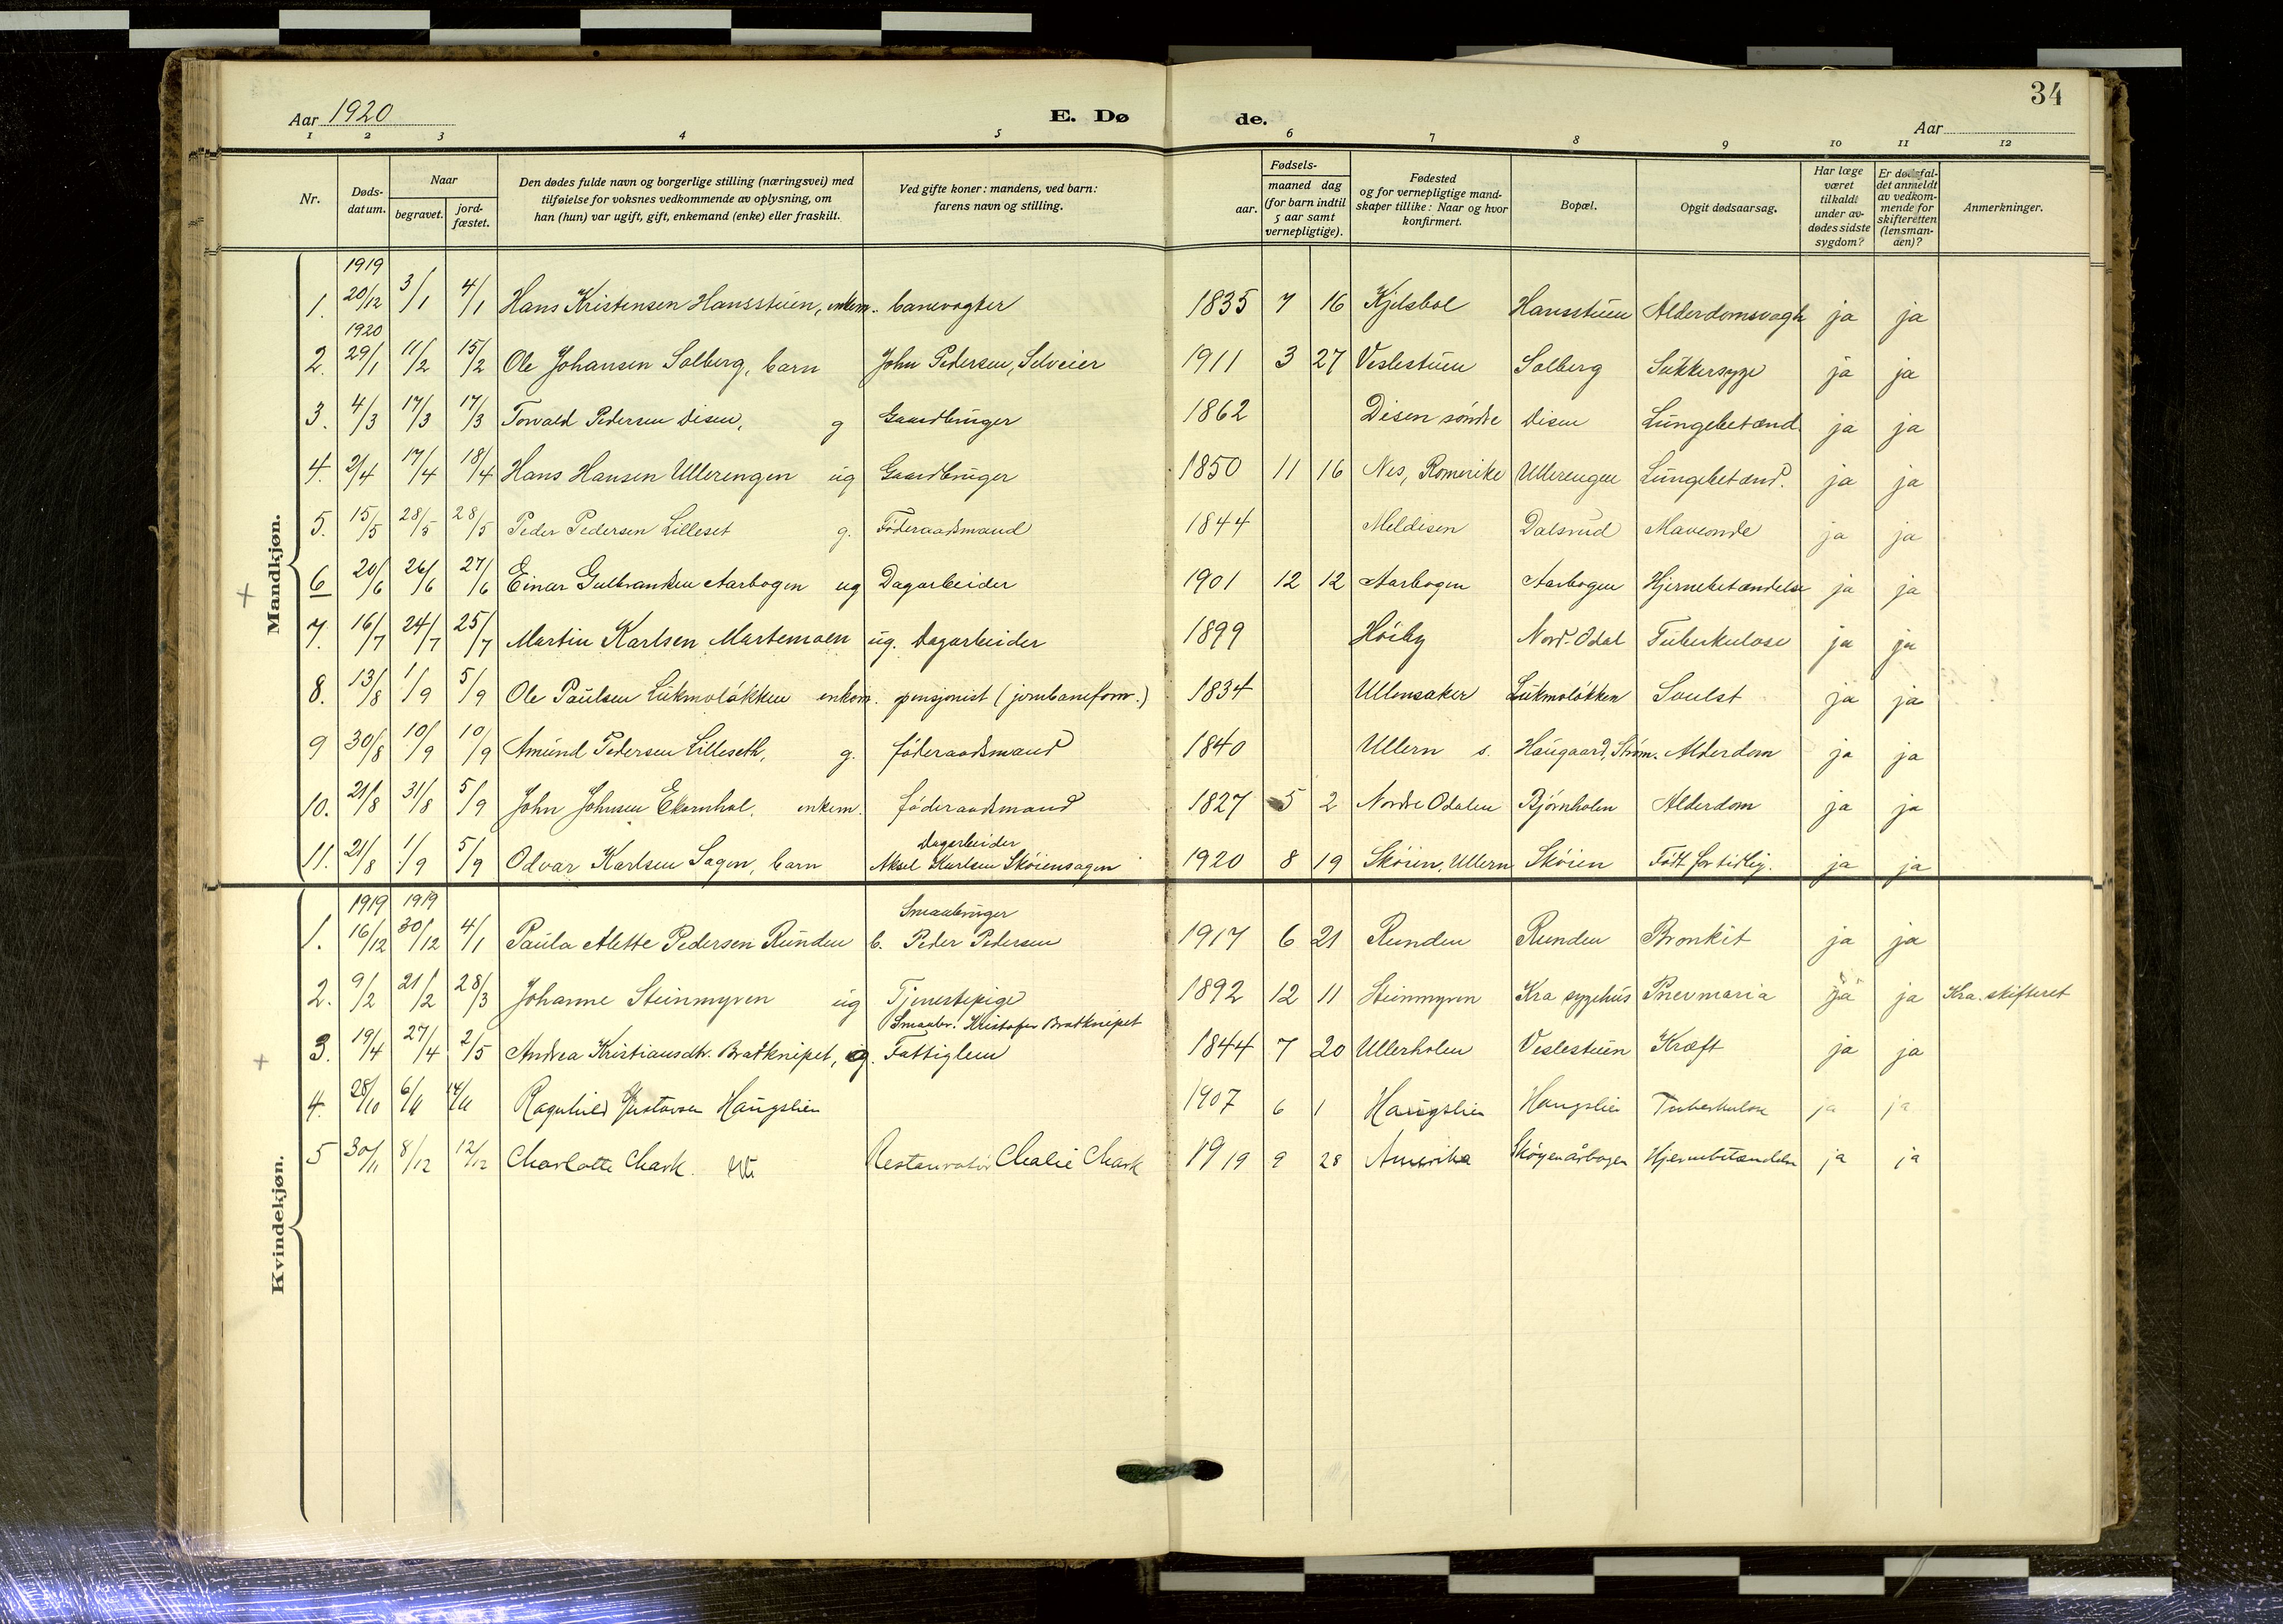 34
Aar 1920 E. Dø de. Aar
1 2 3 4 5 6 7 8 9 10 11 12
Nr. Døds-datum. Naar begravet. jord-fæstet. Den dødes fulde navn og borgerlige stilling (næringsvei) med tilføielse for voksnes vedkommende av oplysning, om han (hun) var ugift, gift, enkemand (enke) eller fraskilt. Ved gifte koner: mandens, ved barn: farens navn og stilling. Fødsels- aar. maaned dag (for barn indtil 5 aar samt vernepligtige). Fødested og for vernepligtige mand-skaper tillike: Naar og hvor konfirmert. Bopæl. Opgit dødsaarsag. Har læge været tilkaldt under av-dødes sidste sygdom? Er dødsfal-det anmeldt av vedkom-mende for skifteretten (lensman-den)? Anmerkninger.
Mandkjøn.
1919
1. 20/12 3/1 4/1 Hans Kristensen Hansstuen, enkem. banevogter 1835 7 16 Kjelsbol Hansstuen Alderdomsvagh ja ja
1920
2. 29/1 11/2 15/2 Ole Johansen Solberg, barn John Pedersen, Selveier 1911 3 27 Veslestuen Solberg Sukkersyge ja ja
3. 4/3 17/3 17/3 Torvald Pedersen Disen, g Gaardbruger 1862 Disen søndre Disen Lungebetænd. ja ja
4. 2/4 17/4 18/4 Hans Hansen Ullerengen ug Gaardbruger 1850 11 16 Nes, Romerike Ullerengen Lungebetænd. ja ja
5. 15/5 28/5 28/5 Peder Pedersen Lilleset g. Føderaadsmand 1844 Meldisen Dalsrud Maveonde ja ja
+ 6 20/6 26/6 27/6 Einar Gulbrandsen Aarbogen ug Dagarbeider 1901 12 12 Aarbogen Aarbogen Hjernebetændelse ja ja
7. 16/7 24/7 25/7 Martin Karlsen Martemoen ug. Dagarbeider 1899 Høiby Nord-Odal Tuberkulose ja ja
8. 13/8 1/9 5/9 Ole Paulsen Lukmoløkken enkem. pensjonist (jernbaneform.) 1834 Ullensaker Lukmoløkken Svulst ja ja
9 30/8 10/9 10/9 Amund Pedersen Lilleseth, g. føderaadsmand 1840 Ullern s. Haugaard, Strøm. Alderdom ja ja
10. 21/8 31/8 5/9 John Johnsen Ekornhol. enkem. føderaadsmand 1827 5 2 Nordre Odalen Bjørnholen Alderdom ja ja
Dagarbeider
11. 21/8 1/9 5/9 Odvar Karlsen Sagen, barn Aksel Karlsen Skøiensagen 1920 8 19 Skøien, Ullern Skøien Født for tidlig. ja ja
Kvindekjøn.
1919 1919 Smaabruger
1. 16/12 30/12 4/1 Paula Alette Pedersen Runden b. Peder Pedersen 1917 6 21 Runden Runden Bronkit ja ja
2. 9/2 21/2 28/3 Johanne Steinmyren ug Tjenestepige 1892 12 11 Steinmyren Kra sygehus Pnevmaria ja ja Kra. skifteret
Smaabr. Kristofer Bratknipet
+ 3. 19/4 27/4 2/5 Andrea Kristiansdtr. Bratknipet, g. Fattiglem 1844 7 20 Ullerholen Veslestuen Kræft ja ja
4. 28/10 6/11 14/11 Ragnhild Gustavsen Haugslien 1907 6 1 Haugslien Haugslien Tuberkulose ja ja
5 30/11 8/12 12/12 Charlotte Chark. Restauratør Chalie Chark 1919 9 28 Amerika Skøyenårbogen Hjernebetændelse ja ja